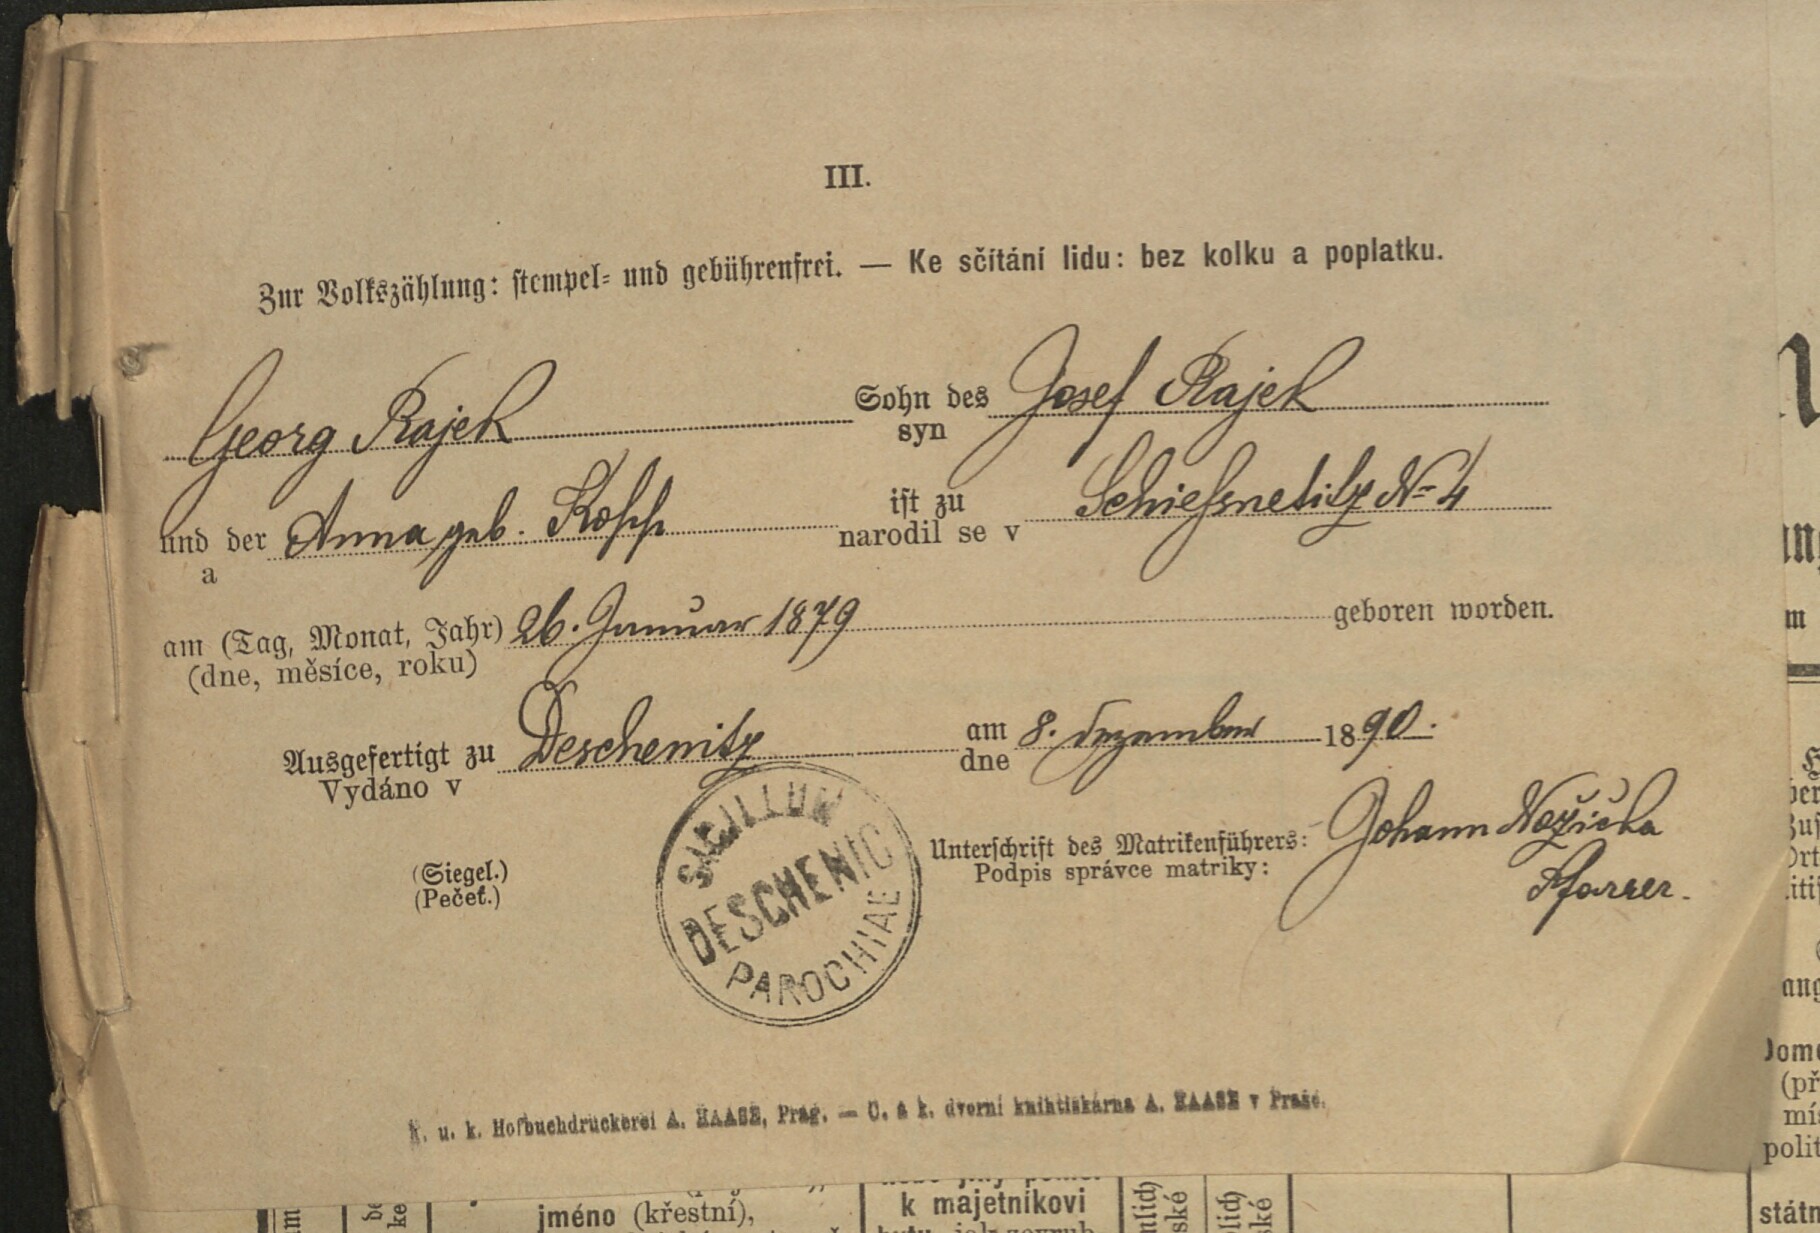 III.
Zur Volkszählung: stempel- und gebührenfrei. — Ke sčítání lidu: bez kolku a poplatku.
Georg Rajek Sohn des Josef Rajek
syn
und der Anna geb. Kopp ist zu Schießnetitz № 4
a narodil se v
am (Tag, Monat, Jahr) 26. Januar 1879 geboren worden.
(dne, měsíce, roku)
Ausgefertigt zu Deschenitz am 8. Dezember 1890.
Vydáno v dne
(Siegel.)
(Pečeť.)
SIGILLUM
DESCHENIC
PAROCHIAE
Unterschrift des Matrikenführers: Johann Nožička
Podpis správce matriky: Pfarrer.
K. u. k. Hofbuchdruckerei A. HAASE, Prag. — C. a k. dvorní knihtiskárna A. HAASE v Praze.
jméno (křestní),
k majetníkovi